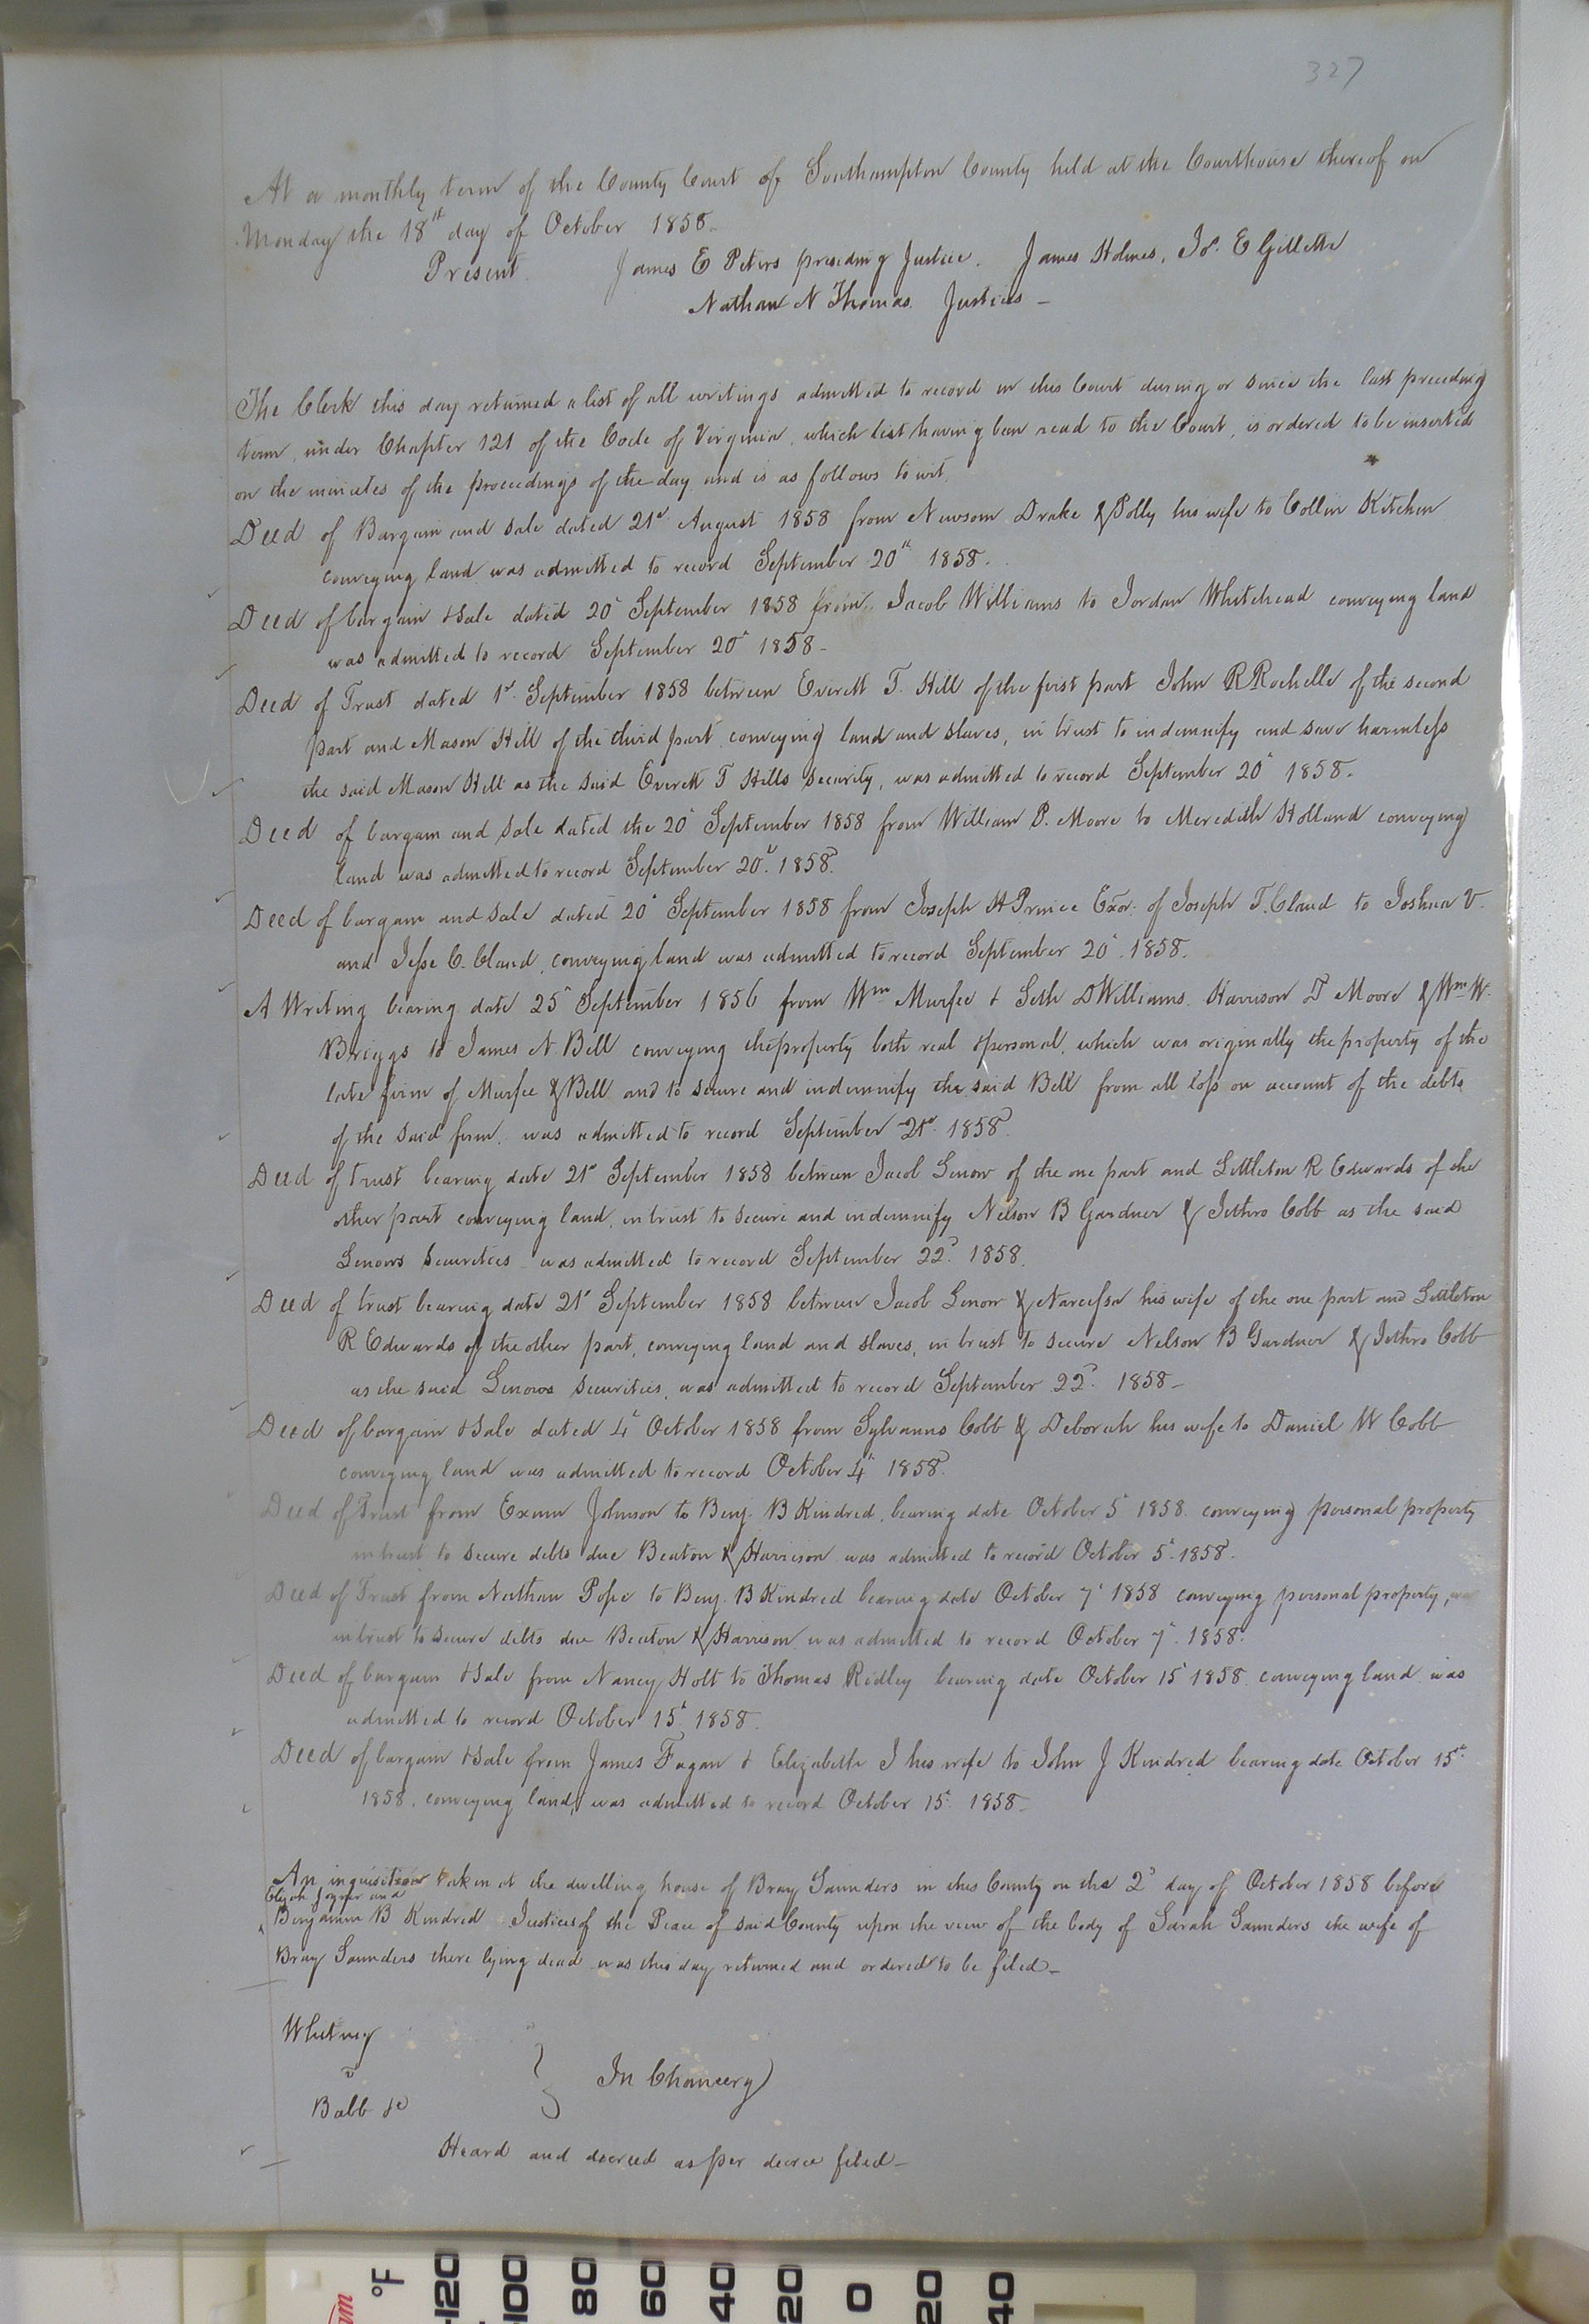 327
At a monthly term of the County Court of Southampton County held at the Courthouse thereof on
Monday the 18th day of October 1858.
Present. James E Peters presiding Justice. James Holmes, Jos. E Gillette
Nathan N Thomas. Justices -
The Clerk this day returned a list of all writings admitted to record in this Court during or since the last preceding
term, under Chapter 121 of the Code of Virginia, which list having been read to the Court, is ordered to be inserted
on the minutes of the proceedings of the day and is as follows to wit.
Deed of Bargain and sale dated 21st August 1858 from Newsom Drake & Polly his wife to Collin Kitchen
conveying land was admitted to record September 20th 1858.
Deed of bargain & Sale dated 20th September 1858 from Jacob Williams to Jordan Whitehead conveying land
was admitted to record September 20th 1858 -
Deed of Trust dated 1st September 1858 between Everett T. Hill of the first part John R Rochelle of the second
part and Mason Hill of the third part conveying land and slaves, in trust to indemnify and save harmless
the said Mason Hill as the said Everett T Hills security, was admitted to record September 20th 1858.
Deed of bargain and sale dated the 20th September 1858 from William P. Moore to Meredith Holland conveying
land was admitted to record September 20th 1858.
Deed of bargain and sale dated 20th September 1858 from Joseph H Prince Exor. of Joseph T. Claud to Joshua V.
and Jesse C. Claud, conveying land was admitted to record September 20th 1858.
A Writing bearing date 25th September 1856 from Wm Murfee & Seth D Williams. Harrison T Moore & Wm W.
Briggs to James N Bell conveying the property both real & personal, which was originally the property of the
late firm of Murfee & Bell and to secure and indemnify the said Bell from all loss on account of the debts
of the said firm, was admitted to record September 21st 1858
Deed of trust bearing date 21st September 1858 between Jacob Lenow of the one part and Littleton R Edwards of the
other part conveying land, in trust to secure and indemnify Nelson B Gardner & Jethro Cobb as the said
Lenows securities was admitted to record September 22d 1858.
Deed of trust bearing date 21st September 1858 between Jacob Lenow & Narcissa his wife of the one part and Littleton
R Edwards of the other part, conveying land and slaves, in trust to secure Nelson B Gardner & Jethro Cobb
as the said Lenows securities, was admitted to record September 22d 1858 -
Deed of bargain & Sale dated 4th October 1858 from Sylvanus Cobb & Deborah his wife to Daniel W Cobb
conveying land was admitted to record October 4th 1858.
Deed of Trust from Exum Johnson to Benj. B Kindred, bearing date October 5th 1858 conveying personal property
in trust to secure debts due Beaton & Harrison was admitted to record October 5th 1858.
Deed of Trust from Nathan Pope to Benj. B Kindred bearing date October 7th 1858 conveying personal property,
in trust to secure debts due Beaton & Harrison was admitted to record October 7th 1858.
Deed of bargain & Sale from Nancy Holt to Thomas Ridley bearing date October 15th 1858 conveying land was
admitted to record October 15th 1858.
Deed of bargain & Sale from James Fagan & Elizabeth J his wife to John J Kindred bearing date October 15th
1858. conveying land, was admitted to record October 15th 1858 -
An inquisition taken at the dwelling house of Bray Saunders in this County on the 2d day of October 1858 before
Elijah Joyner and
Benjamin B Kindred Justices of the Peace of said County upon the view of the body of Sarah Saunders the wife of
Bray Saunders there lying dead was this day returned and ordered to be filed -
Whitney
v
Babb &c
In Chancery
Heard and decreed as per decree filed -
°F
120
100
80
60
40
20
0
20
40